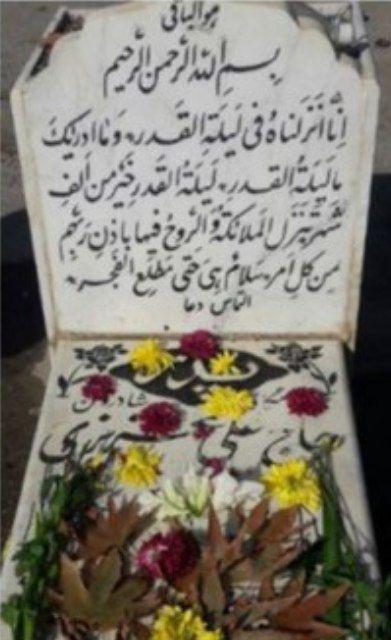 هو الباقی
بسم الله الرحمن الرحیم
انا انزلناه فی لیلة القدر وما ادریک
ما لیلة القدر لیلة القدر خیر من الف
شهر تنزل الملائکة والروح فیها باذن ربهم
من کل امر سلام هی حتی مطلع الفجر
التماس دعا
پدر
شادروان
حاج علی